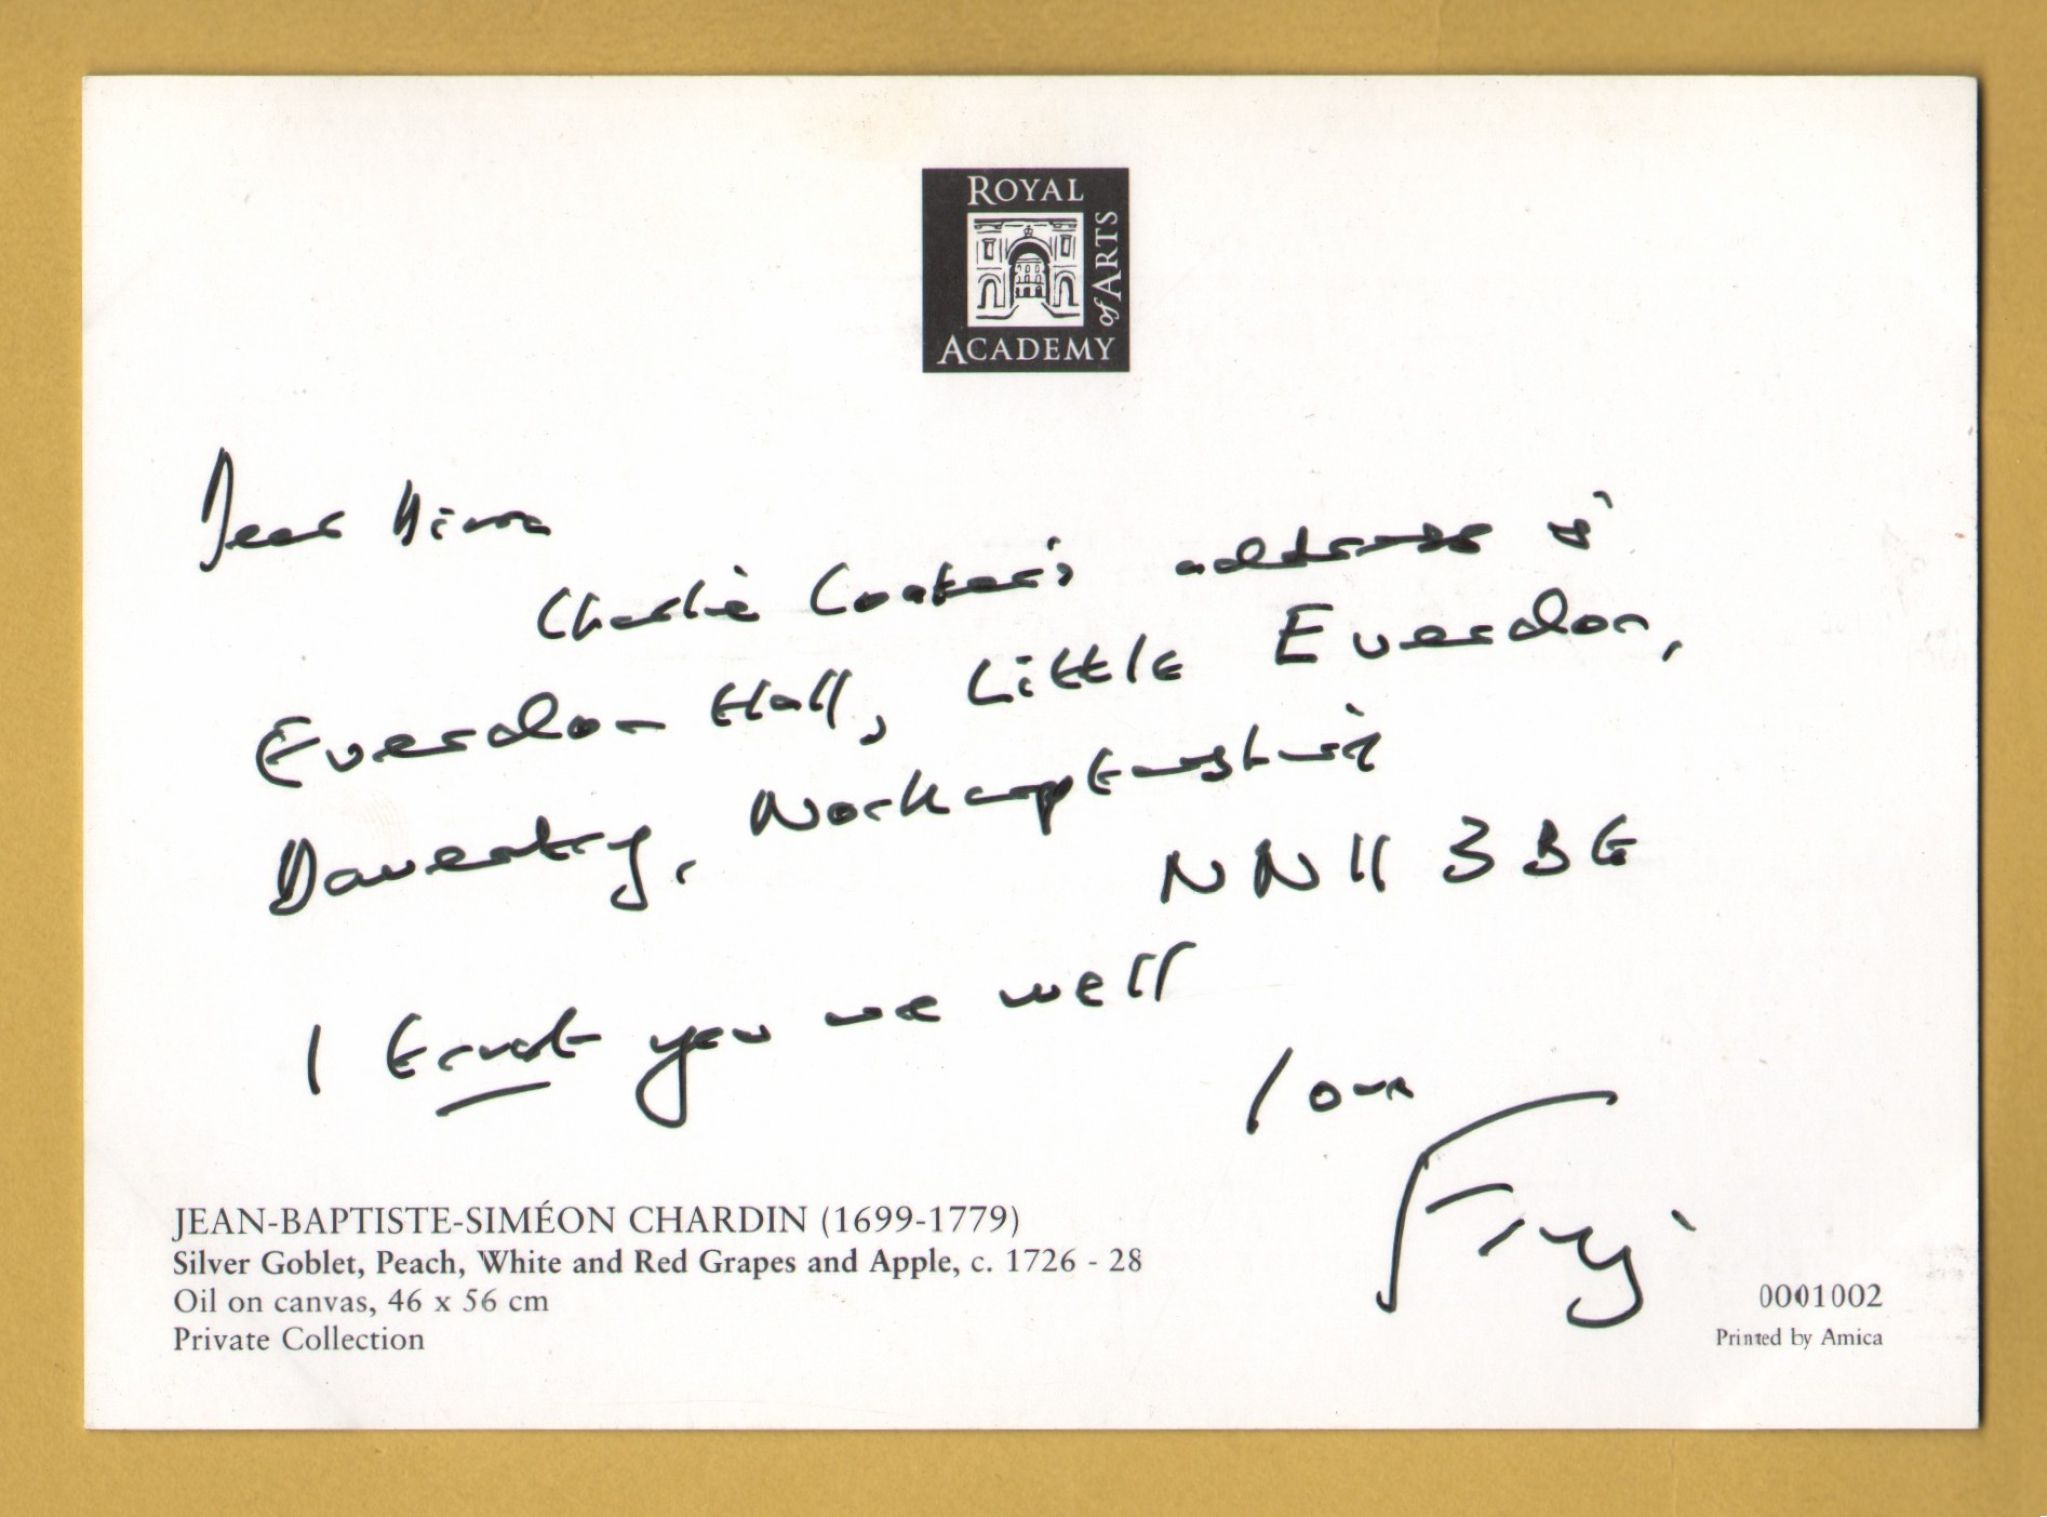 ROYAL
ACADEMY
of ARTS
Dear
Charlie address is
Everdon Hall, Little Everdon,
Daventry, Northamptonshire
NN11 3BG
I trust you are well
JEAN-BAPTISTE-SIMÉON CHARDIN (1699-1779)
Silver Goblet, Peach, White and Red Grapes and Apple, c. 1726 - 28
Oil on canvas, 46 x 56 cm
Private Collection
0001002
Printed by Amica